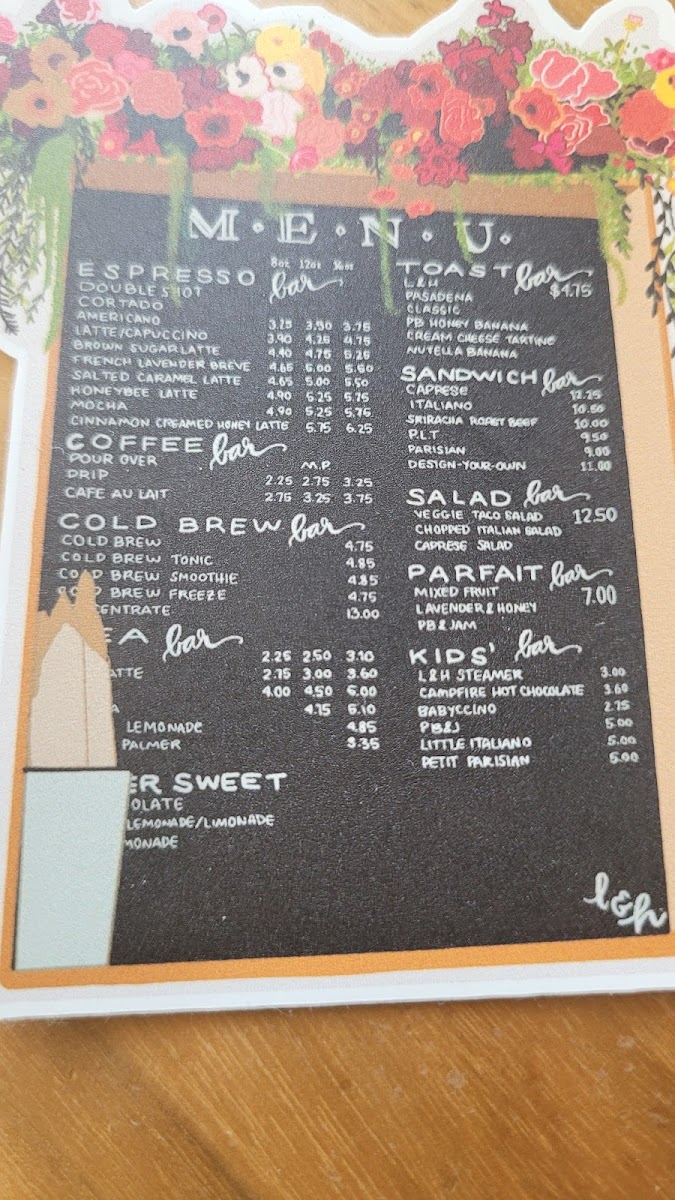 M·E·N·U·
ESPRESSO bar 8oz 12oz 16oz
DOUBLE SHOT
CORTADO
AMERICANO 3.25 3.50 3.75
LATTE/CAPUCCINO 3.90 4.25 4.75
BROWN SUGAR LATTE 4.40 4.75 5.25
FRENCH LAVENDER BREVE 4.65 5.00 5.50
SALTED CARAMEL LATTE 4.65 5.00 5.50
HONEYBEE LATTE 4.90 5.25 5.75
MOCHA 4.90 5.25 5.75
CINNAMON CREAMED HONEY LATTE 5.75 6.25
COFFEE bar
POUR OVER M.P
DRIP 2.25 2.75 3.25
CAFE AU LAIT 2.75 3.25 3.75
COLD BREW bar
COLD BREW 4.75
COLD BREW TONIC 4.85
COLD BREW SMOOTHIE 4.85
COLD BREW FREEZE 4.75
CENTRATE 13.00
EA bar
2.25 2.50 3.10
ATTE 2.75 3.00 3.60
4.00 4.50 5.00
A 4.75 5.10
LEMONADE 4.85
PALMER 3.35
ER SWEET
OLATE
LEMONADE/LIMONADE
MONADE
TOAST bar
L&H $4.75
PASADENA
CLASSIC
PB HONEY BANANA
CREAM CHEESE TARTINE
NUTELLA BANANA
SANDWICH bar
CAPRESE 12.25
ITALIANO 10.50
SRIRACHA ROAST BEEF 10.00
P.L.T 9.50
PARISIAN 9.00
DESIGN-YOUR-OWN 11.00
SALAD bar
VEGGIE TACO SALAD 12.50
CHOPPED ITALIAN SALAD
CAPRESE SALAD
PARFAIT bar
MIXED FRUIT 7.00
LAVENDER & HONEY
PB & JAM
KIDS' bar
L&H STEAMER 3.00
CAMPFIRE HOT CHOCOLATE 3.60
BABYCCINO 2.75
PB&J 5.00
LITTLE ITALIANO 5.00
PETIT PARISIAN 5.00
l&h